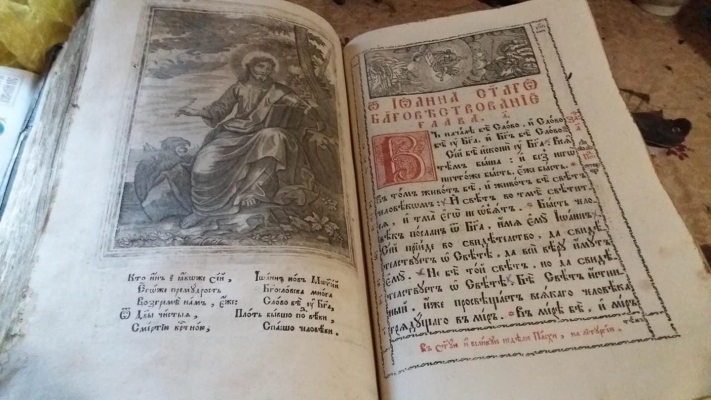 Кто н҃нѣ ꙗ҆́кѡже сі́й,
Е҆гѡ́же премꙋ́дрость
Возгремѣ̀ на́мъ, є҆́же
Ѿ Дв҃ы чи́стыѧ,
Сме́ртїю
І҆ѡа́ннъ но́въ
Бг҃осло́вїѧ мно́га
Сло́во бѣ̀ ᲂу҆ Бг҃а,
Пло́ть бы́вшо по вѣ́ки,
Спа́сшо человѣ́ки.
Ѿ І҆ѠА́ННА СТА́ГѠ
БЛ҃ГОВѢ́СТВОВАНЇЕ
ГЛАВА̀. а҃
Въ нача́лѣ бѣ̀ Сло́во, и҆ Сло́во
бѣ̀ ᲂу҆ Бг҃а, и҆ Бг҃ъ бѣ̀ Сло́во
Се́й бѣ̀ и҆сконѝ ᲂу҆ Бг҃а: Всѧ̑
тѣ́мъ бы́ша: и҆ без̾ негѡ̀
ничто́же бы́сть, є҆́же бы́сть.
Въ то́мъ живо́тъ бѣ̀, и҆ живо́тъ бѣ̀ свѣ́тъ
человѣ́кѡмъ: И҆ свѣ́тъ во тмѣ̀ свѣ́тит
сѧ, и҆ тма̀ є҆гѡ̀ не ѡ҆б̾ѧ́тъ. Бы́сть чело
вѣ́къ по́сланъ ѿ Бг҃а, и҆́мѧ є҆мꙋ̀ І҆ѡа́ннъ:
Се́й прїи́де во свидѣ́телство, да свидѣ́
телствꙋетъ ѡ҆ Свѣ́тѣ, да всѝ вѣ́рꙋ и҆́мꙋтъ
є҆мꙋ̀. Не бѣ̀ то́й свѣ́тъ, но да свидѣ́
телствꙋетъ ѡ҆ Свѣ́тѣ. Бѣ̀ Свѣ́тъ и҆́стин
ный, и҆́же просвѣща́етъ всѧ́каго человѣ́ка
грѧдꙋ́щаго въ мі́ръ. Въ мі́рѣ бѣ̀, и҆ мі́ръ
тѣ́мъ
Въ и҆ вели́кꙋю недѣ́лю Па́схи, на лїтꙋргі́и.